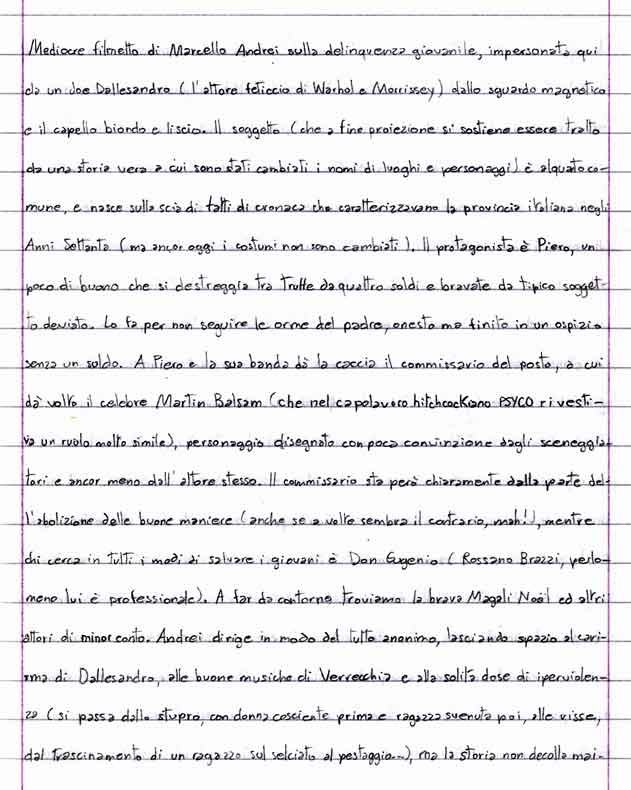 Mediocre filmetto di Marcello Andrei sulla delinquenza giovanile, impersonata qui
da un Joe Dallesandro (l'attore feticcio di Warhol e Morrissey) dallo sguardo magnetico
e il capello biondo e liscio. Il soggetto (che a fine proiezione si sostiene essere tratto
da una storia vera a cui sono stati cambiati i nomi di luoghi e personaggi) è alquato co-
mune, e nasce sulla scia di fatti di cronaca che caratterizzavano la provincia italiana negli
Anni Settanta (ma ancor oggi i costumi non sono cambiati). Il protagonista è Piero, un
poco di buono che si destreggia tra truffe da quattro soldi e bravate da tipico sogget-
to deviato. Lo fa per non seguire le orme del padre, onesto ma finito in un ospizio
senza un soldo. A Piero e la sua banda dà la caccia il commissario del posto, a cui
dà volto il celebre Martin Balsam (che nel capolavoro hitchcockiano PSYCO rivesti-
va un ruolo molto simile), personaggio disegnato con poca convinzione dagli sceneggia-
tori e ancor meno dall'attore stesso. Il commissario sta però chiaramente dalla parte del-
l'abolizione delle buone maniere (anche se a volte sembra il contrario, mah!), mentre
chi cerca in tutti i modi di salvare i giovani è Don Eugenio (Rossano Brazzi, perlo-
meno lui è professionale). A far da contorno troviamo la brava Magali Noël ed altri
attori di minor conto. Andrei dirige in modo del tutto anonimo, lasciando spazio al cari-
sma di Dallesandro, alle buone musiche di Verrecchia e alla solita dose di iperviolen-
za (si passa dallo stupro, con donna cosciente prima e ragazza svenuta poi, alle risse,
dal trascinamento di un ragazzo sul selciato al pestaggio...), ma la storia non decolla mai.